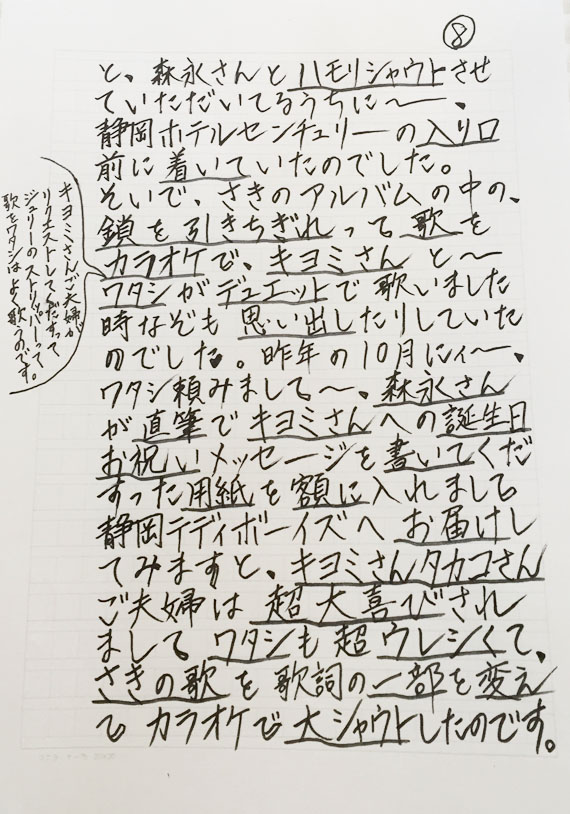 ⑧
と、森永さんとハモリシャウトさせ
ていただいてるうちに〜、
静岡ホテルセンチュリーの入り口
前に着いていたのでした。
そいで、さきのアルバムの中の、
鎖を引きちぎれって歌を
カラオケで、キヨミさんと〜
ワタシがデュエットで歌いました
時なぞも思い出したりしていた
のでした。昨年の10月にィ〜、
ワタシ頼みまして〜、森永さん
が直筆でキヨミさんへの誕生日
お祝いメッセージを書いてくだ
すった用紙を額に入れまして
静岡テディボーイズへお届けし
てみますと、キヨミさんタカコさん
ご夫婦は超大喜びされ
まして ワタシも超ウレシくて、
さきの歌を歌詞の一部を変え
て カラオケで大シャウトしたのです。
キヨミさんご夫婦が
リクエストしてくだすって
ジュリーのストリッパーって
歌をワタシはよく歌うのです。